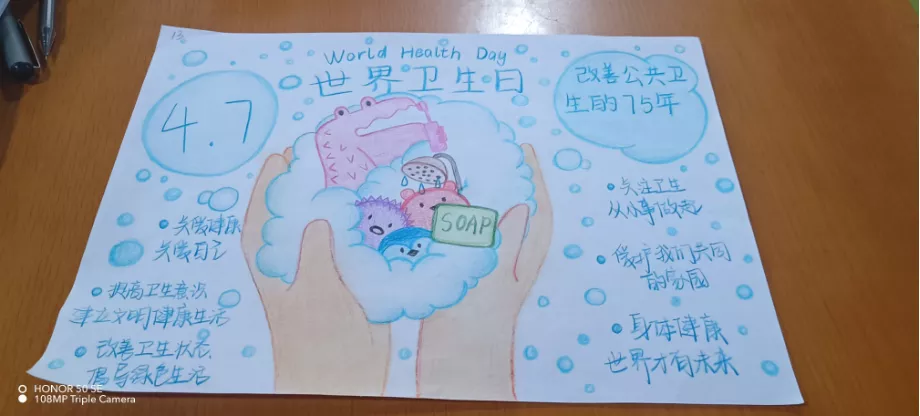 World Health Day
世界卫生日
4.7
改善公共卫
生的75年
SOAP
关爱健康
关爱自己
提高卫生意识
建立文明健康生活
改善卫生状态,
倡导绿色生活
关注卫生
从小事做起
保护我们共同
的家园
身体健康
世界才有未来
HONOR 50 SE
108MP Triple Camera